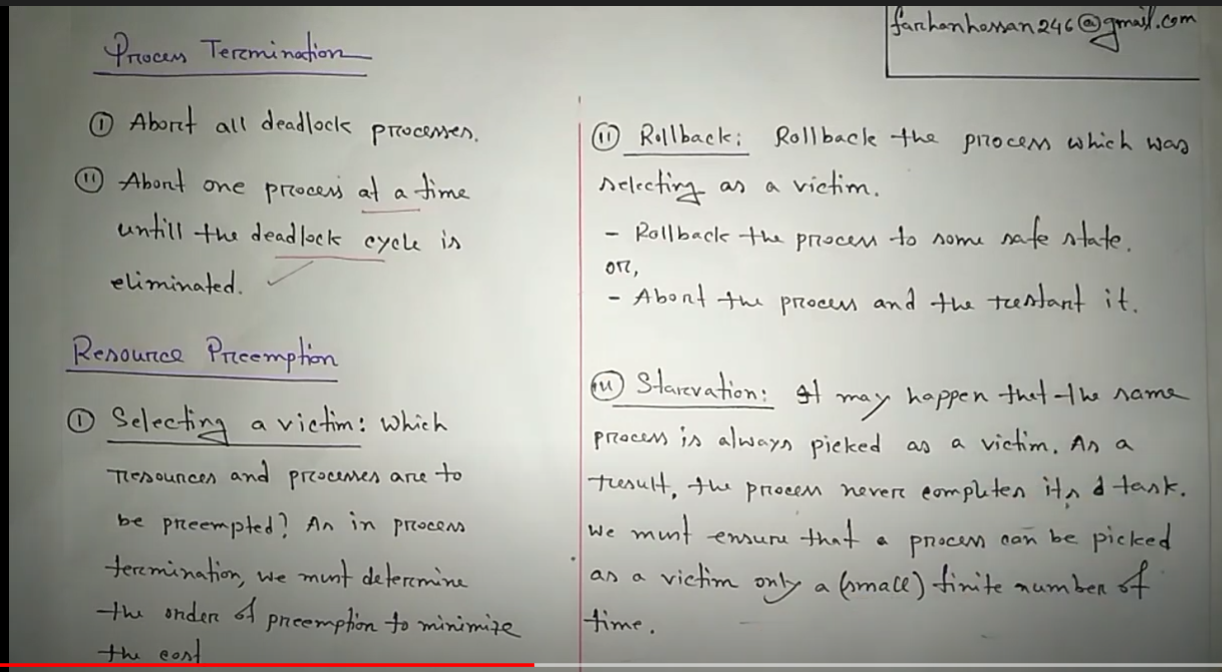 farhanhassan246@gmail.com
Process Termination
① Abort all deadlock processes.
⑪ Abort one process at a time
untill the deadlock cycle is
eliminated.
Resource Preemption
① Selecting a victim: which
resources and processes are to
be preempted? As in process
termination, we must determine
the order of preemption to minimize
the cost
⑪ Rollback: Rollback the process which was
selecting as a victim.
- Rollback the process to some safe state.
or,
- Abort the process and the restart it.
(iii) Starvation: It may happen that the same
process is always picked as a victim. As a
result, the process never completes its d task.
We must ensure that a process can be picked
as a victim only a (small) finite number of
time.